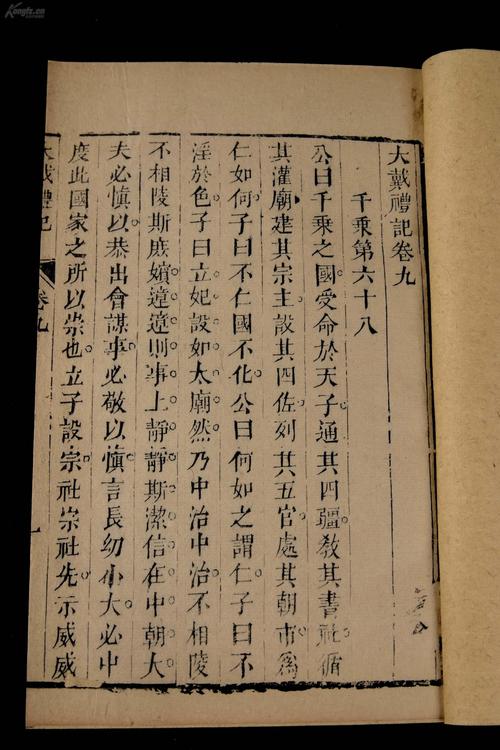 大戴禮記卷九
千乘第六十八
公曰千乘之國受命於天子通其四疆敎其書社循
其灌廟建其宗主設其四佐列其五官處其朝市爲
仁如何子曰不仁國不化公曰何如之謂仁子曰不
淫於色子曰立妃設如太廟然乃中治中治不相陵
不相陵斯庶嬪違違則事上靜靜斯潔信在中朝大
夫必愼以恭出會謀事必敬以愼言長幼小大必中
度此國家之所以崇也立子設宗社宗社先示威威
大戴禮記
卷九
一
Kongfz.cn